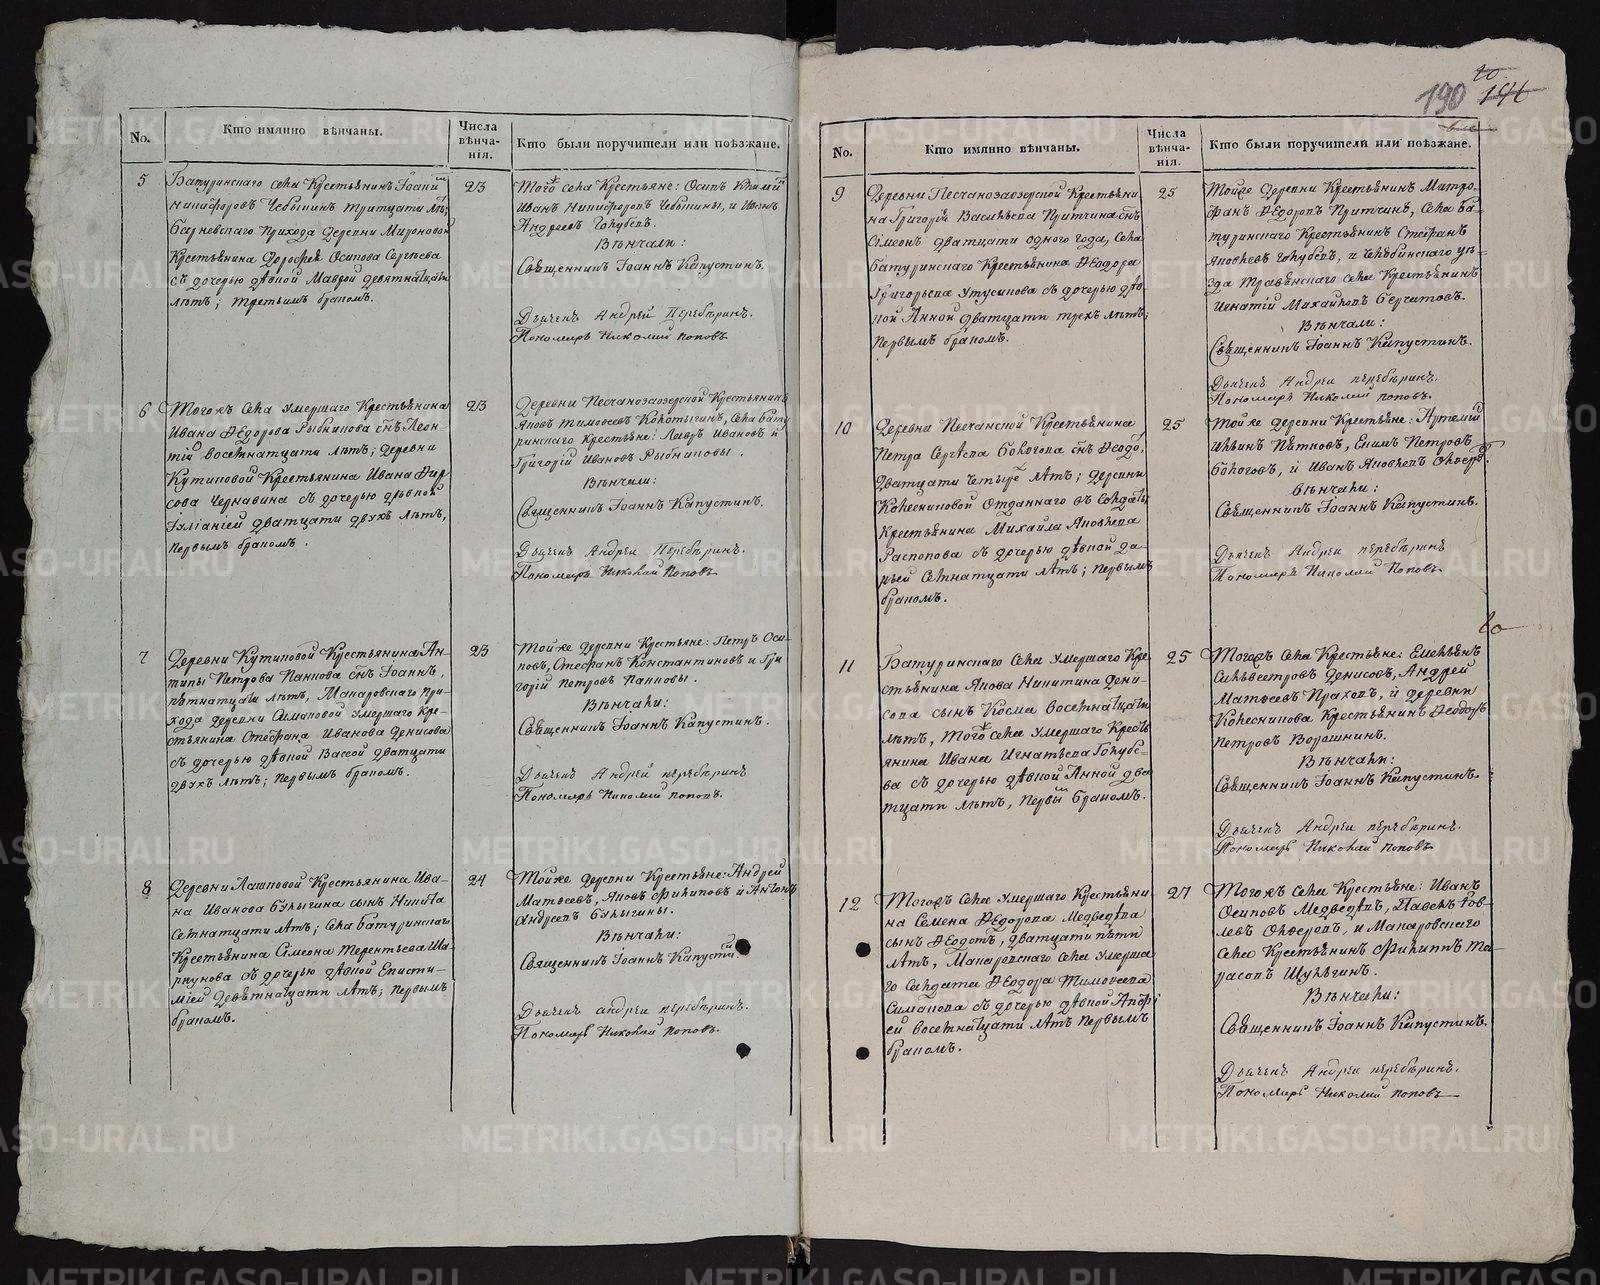 190 146
No.
Кто имянно вѣнчаны.
Числа вѣнча-нія.
Кто были поручители или поѣзжане.
5
Батуринскаго села Крестьянинъ Іоаннъ
Никифоровъ Чебыкинъ тритцати лѣтъ;
Барневскаго прихода деревни Мироновой
Крестьянина Дорофея Осипова Сергѣева
съ дочерью дѣвкой Маврой девятнатцати
лѣтъ; третьимъ бракомъ.
23
Того села Крестьяне: Осипъ
Иванъ Никифоровъ Чебыкины, и Иванъ
Андреевъ Голубевъ.
Вѣнчали:
Священникъ Іоаннъ Капустинъ.
Дьячекъ Андрей Перебѣринъ.
Пономарь Николай Поповъ
6
Того жъ села умершаго Крестьянина
Ивана Ѳедорова Рыбникова сынъ Леон-
тій восемнатцати лѣтъ; деревни
Кутиковой Крестьянина Ивана Фир
сова Чернавина съ дочерью дѣвкой
Іуліаніей дватцати двухъ лѣтъ,
первымъ бракомъ.
23
Деревни Песчанозаозерской Крестьянинъ
Яковъ Тимофеевъ Колотыгинъ, села Бату
ринскаго Крестьяне: Лавръ Ивановъ и
Григорій Ивановъ Рыбниковы.
Вѣнчали:
Священникъ Іоаннъ Капустинъ.
Дьячекъ Андрей Перебѣринъ.
Пономарь Николай Поповъ
7
Деревни Кутиковой Крестьянина Ан-
типы Петрова Панкова сынъ Іоаннъ,
пятнатцати лѣтъ, Макаровскаго при-
хода деревни Симаковой умершаго Кре-
стьянина Стефана Иванова Денисова
съ дочерью дѣвкой Вассой дватцати
двухъ лѣтъ; первымъ бракомъ.
23
Той же деревни Крестьяне: Петръ Оси-
повъ, Стефанъ Константиновъ и Гри
горій Петровъ Панковы.
Вѣнчали:
Священникъ Іоаннъ Капустинъ.
Дьячекъ Андрей перебѣринъ
Пономарь Николай поповъ.
8
Деревни Лашковой Крестьянина Ива-
на Иванова Булыгина сынъ Никита
семнатцати лѣтъ; села Батуринскаго
Крестьянина Сѵмеона Терентьева Ша-
ркунова съ дочерью дѣвкой Еписти-
міей девятнатцати лѣтъ; первымъ
бракомъ.
24
Той же деревни Крестьяне: Андрей
Матвеевъ, Яковъ Филиповъ и Антонъ
Андреевъ Булыгины.
Вѣнчали:
Священникъ Іоаннъ Капусти.
Дьячекъ андреи перебѣринъ.
Пономарь Николай поповъ.
No.
Кто имянно вѣнчаны.
Числа вѣнча-нія.
Кто были поручители или поѣзжане.
9
Деревни Песчанозаозерской Крестьяни
на Григорія Васильева Притчина сынъ
Сімеонъ дватцати одного года, села
Батуринскаго Крестьянина Ѳеодора
Григорьева Утусикова съ дочерью дѣв
кой Анной дватцати трехъ лѣтъ;
первымъ бракомъ.
25
Той же деревни Крестьянинъ Митро-
фанъ Ѳедоровъ Притчинъ, села Ба-
туринскаго Крестьянинъ Стефанъ
Яковлевъ Голубевъ, и Челябинскаго уѣ-
зда Травянскаго села Крестьянинъ
Игнатій Михайловъ Берчатовъ.
Вѣнчали:
Священникъ Іоаннъ Капустинъ.
Дьячекъ Андреи перебѣринъ.
Пономарь Николай поповъ.
10
Деревни Песчанской Крестьянина
Петра Сергѣева Бокогова сынъ Ѳеодо.
дватцати четырехъ лѣтъ; деревни
Колесниковой Отданнаго въ солдаты
Крестьянина Михайла Яковлева
Распопова съ дочерью дѣвкой Да-
рьей семнатцати лѣтъ; первымъ
бракомъ.
25
Той же деревни Крестьяне: Артемій
Ильинъ Пятковъ, Екимъ Петровъ
Боkоговъ, и Иванъ Яковлевъ
Вѣнчали:
Священникъ Іоаннъ Капустинъ.
Дьячекъ Андреи перебѣринъ
Пономарь Николай Поповъ
11
Батуринскаго села умершаго Кре
стьянина Якова Никитина Дени-
сова сынъ Косма восемнатцати
лѣтъ, того села умершаго Кресть
янина Ивана Игнатьева Голубе-
ва съ дочерью дѣвкой Анной два
тцати лѣтъ, первымъ бракомъ.
25
Того жъ села Крестьяне: Емельянъ
Сильвестровъ Денисовъ, Андрей
Матвеевъ Праховъ, и деревни
Колесникова Крестьянинъ Ѳеодоръ
Петровъ Ворошнинъ.
Вѣнчали:
Священникъ Іоаннъ Капустинъ.
Дьячекъ Андреи перебѣринъ.
Пономарь Николай поповъ
12
Того жъ села умершаго Крестьяни-
на Семена Ѳедорова Медведева
сынъ Ѳедотъ, дватцати пяти
лѣтъ, Макаровскаго села умерша
го салдата Ѳеодора Тимофеева
Симакова съ дочерью дѣвкой Агафі
ей восемнатцати лѣтъ первымъ
бракомъ.
27
Того жъ села Крестьяне: Иванъ
Осиповъ Медведевъ, Павелъ Іов-
левъ Олферовъ, и Макаровскаго
села Крестьянинъ Филиппъ Та-
расовъ Шулягинъ.
Вѣнчали:
Священникъ Іоаннъ Капустинъ.
Дьячекъ Андреи перебѣринъ.
Пономарь Николай поповъ
METRIKI.GASO-URAL.RU